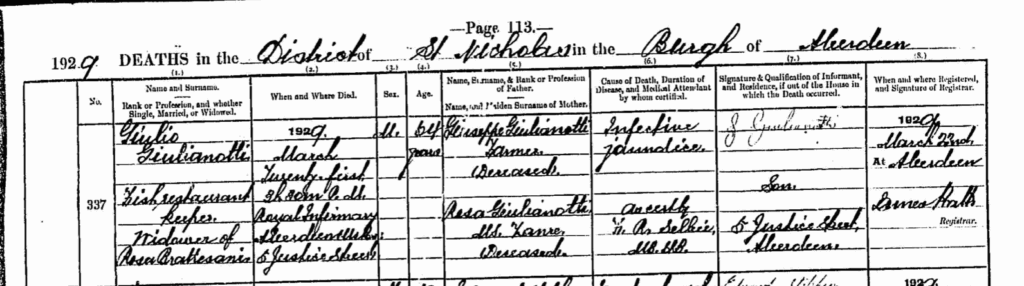 —Page 113.—
1929 DEATHS in the District of St Nicholas in the Burgh of Aberdeen
(1.) (2.) (3.) (4.) (5.) (6.) (7.) (8.)
No.
Name and Surname.
Rank or Profession, and whether
Single, Married, or Widowed.
When and Where Died.
Sex.
Age.
Name, Surname, & Rank or Profession
of Father.
Name, and Maiden Surname of Mother.
Cause of Death, Duration of
Disease, and Medical Attendant
by whom certified.
Signature & Qualification of Informant,
and Residence, if out of the House in
which the Death occurred.
When and where Registered,
and Signature of Registrar.
337
Giulio
Giulianotti
Fish restaurant
keeper
Widower of
Rosa
1929.
March
Twenty-first
3h 20m
Royal Infirmary
Aberdeen
5 Justice Street
M.
years
Giuseppe Giulianotti
Farmer
Deceased.
Rosa Giulianotti
M.S. Zanre
Deceased.
Infective
jaundice.
As cert by
Selbie
M.B.
Son.
5 Justice Street,
Aberdeen.
1929
March 22nd
At Aberdeen
James
Registrar.
1929